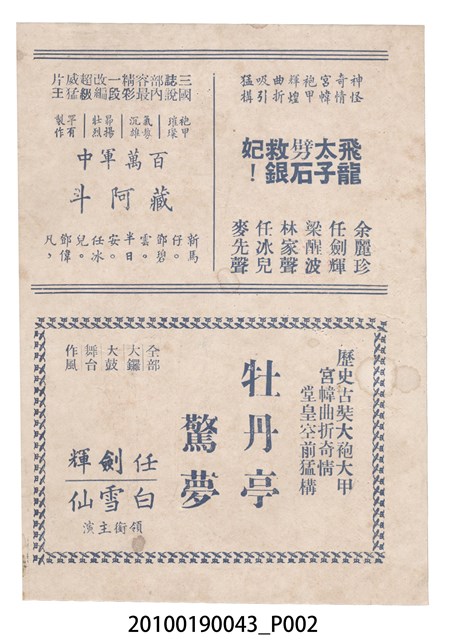 神怪
奇情
宮幃
袍甲
輝煌
曲折
吸引
猛構
飛龍
太子
劈石
救銀
妃!
余麗珍
任劍輝
梁醒波
林家聲
任冰兒
麥先聲
三國
誌說
部內
容最
精彩
一段
改編
超級
威猛
片王
袍甲
璀璨
沉雄
昂揚
壯烈
罕有
製作
百萬軍中
藏阿斗
新馬
仔。
鄧碧
雲。
半日
安。
任冰
兒。
鄧偉
凡，
歷史古裝大袍大甲
宮幃曲折奇情
堂皇空前猛構
牡丹亭
驚夢
全部
大鑼
大鼓
舞台
作風
任劍輝
白雪仙
領銜主演
20100190043_P002